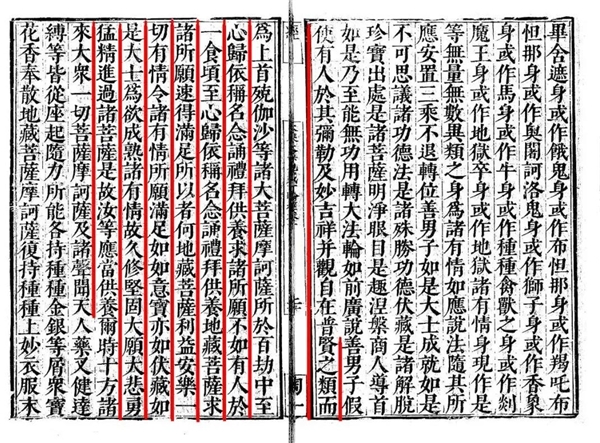 畢舍遮身或作餓鬼身或作布怛那身或作羯吒布
怛那身或作奧闍訶洛鬼身或作師子身或作香象
身或作馬身或作牛身或作種種禽獸之身或作剡
魔王身或作地獄卒身或作地獄諸有情身現作是
等無量無數異類之身爲諸有情如應說法隨其所
應安置三乘不退轉位善男子如是大士成就如是
不可思議諸功德法是諸殊勝功德伏藏是諸解脫
珍寶出處是諸菩薩明淨眼目是趣涅槃商人導首
如是乃至能無功用轉大法輪如前廣說善男子假
使有人於其彌勒及妙吉祥并觀自在普賢之類而
爲上首殑伽沙等諸大菩薩摩訶薩所於百劫中至
心歸依稱名念誦禮拜供養求諸所願不如有人於
一食頃至心歸依稱名念誦禮拜供養地藏菩薩求
諸所願速得滿足所以者何地藏菩薩利益安樂一
切有情令諸有情所願滿足如如意寶亦如伏藏如
是大士爲欲成熟諸有情故久修堅固大願大悲勇
猛精進過諸菩薩是故汝等應當供養爾時十方諸
來大衆一切菩薩摩訶薩及諸聲聞天人藥叉健達
縛等皆從座起隨力所能各持種種金銀等屑衆寶
花香奉散地藏菩薩摩訶薩復持種種上妙衣服末